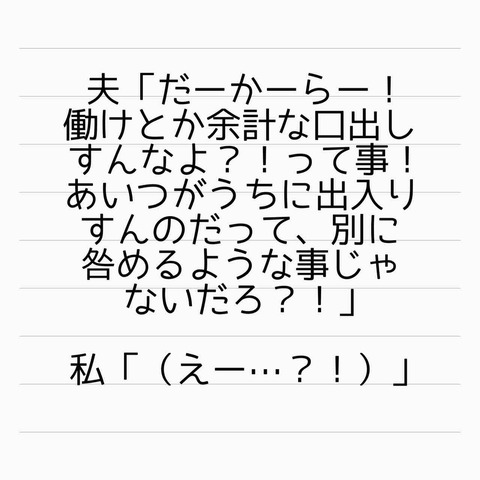 夫「だーかーらー！
働けとか余計な口出し
すんなよ？！って事！
あいつがうちに出入り
すんのだって、別に
咎めるような事じゃ
ないだろ？！」
私「（えー…？！）」